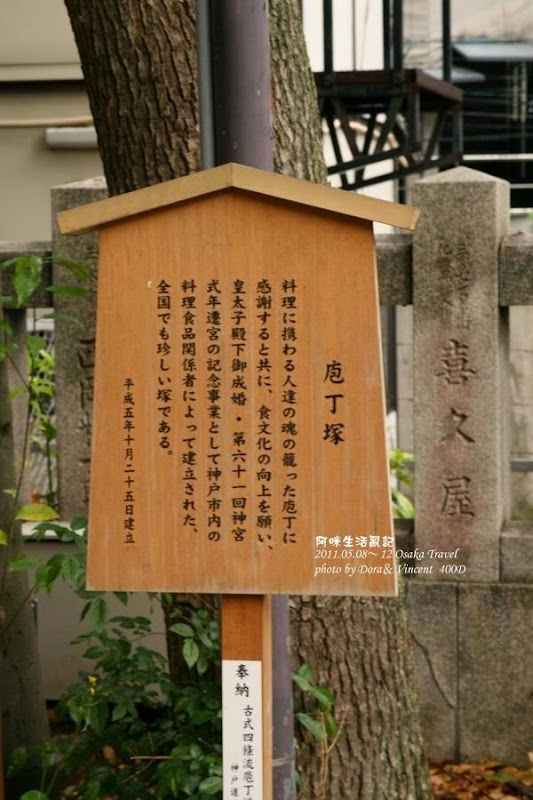 庖丁塚
料理に携わる人達の魂の籠った庖丁に
感謝すると共に、食文化の向上を願い、
皇太子殿下御成婚・第六十一回神宮
式年遷宮の記念事業として神戸市内の
料理食品関係者によって建立された、
全国でも珍しい塚である。
平成五年十月二十五日建立
喜久屋
阿咪生活亂記
2011.05.08~ 12 Osaka Travel
photo by Dora & Vincent 400D
奉納
古式四條流庖丁
神戸